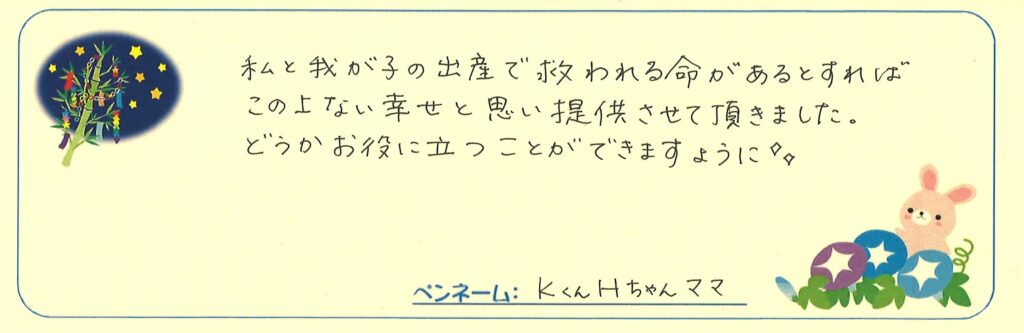 私と我が子の出産で救われる命があるとすれば
この上ない幸せと思い提供させて頂きました。
どうかお役に立つことができますように
ペンネーム: KくんHちゃんママ